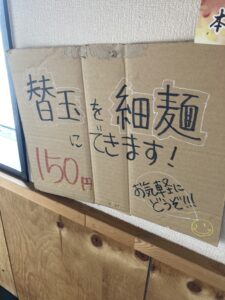 替玉を細麺
にできます!
150円
お気軽に
どうぞ!!!
本